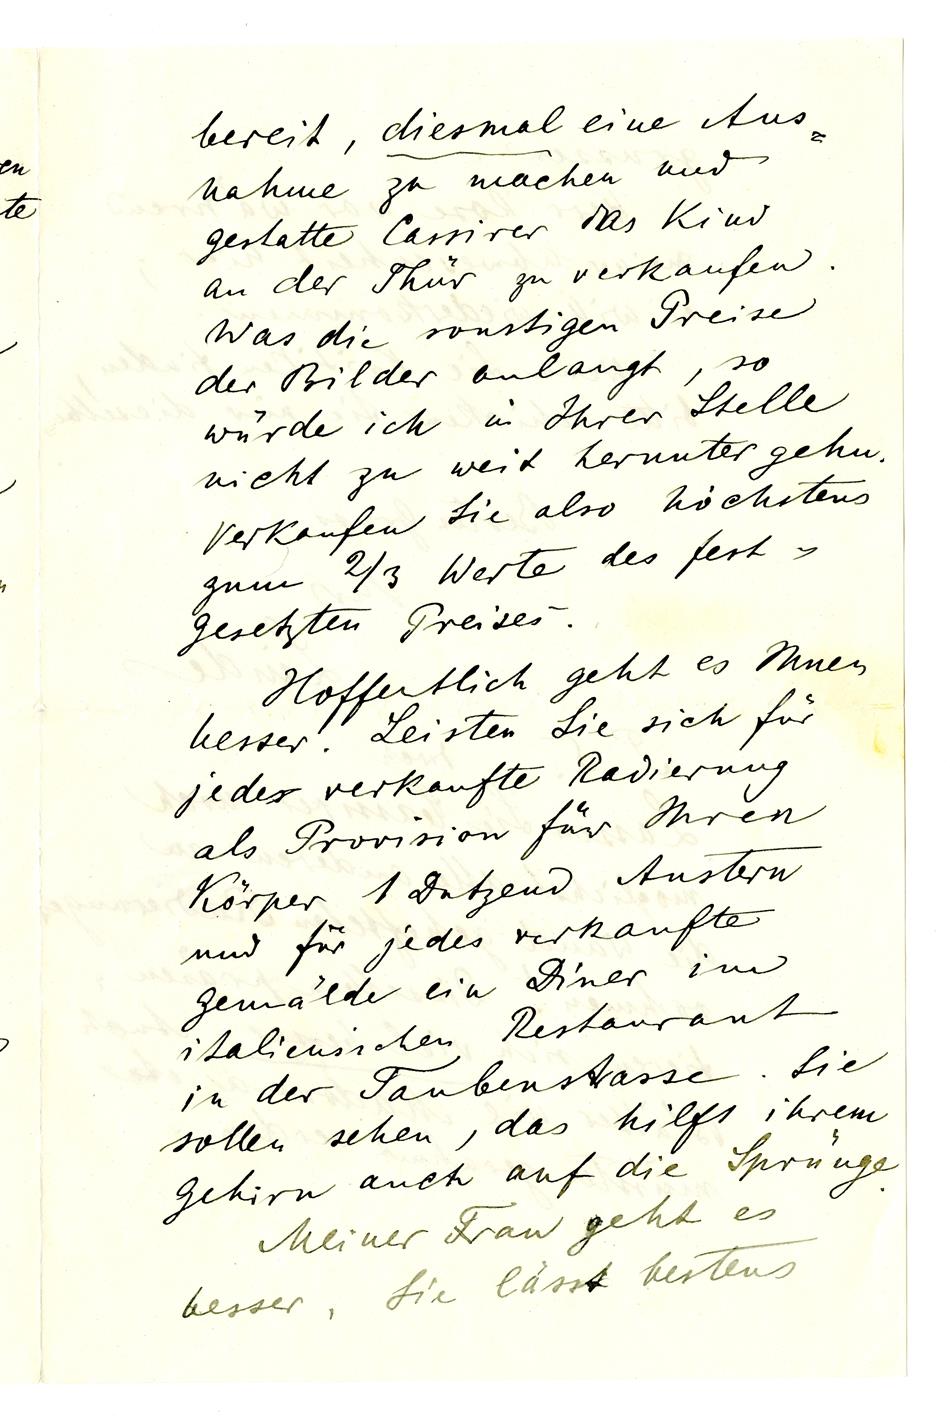 bereit, diesmal eine Aus=
nahme zu machen und
gestatte Cassirer das Kind
an der Thür zu verkaufen.
Was die sonstigen Preise
der Bilder anlangt, so
würde ich in Ihrer Stelle
nicht zu weit herunter gehn.
Verkaufen Sie also höchstens
zum 2/3 Werte des fest=
gesetzten Preises.
Hoffentlich geht es Ihnen
besser. Leisten Sie sich für
jedes verkaufte Radierung
als Provision für Ihren
Körper 1 Dutzend Austern
und für jedes verkaufte
Gemälde ein Diner im
italienischen Restaurant
in der Taubenstrasse. Sie
sollen sehen, das hilft ihrem
Gehirn auch auf die Sprünge.
Meiner Frau geht es
besser, Sie lässt bestens
en
te